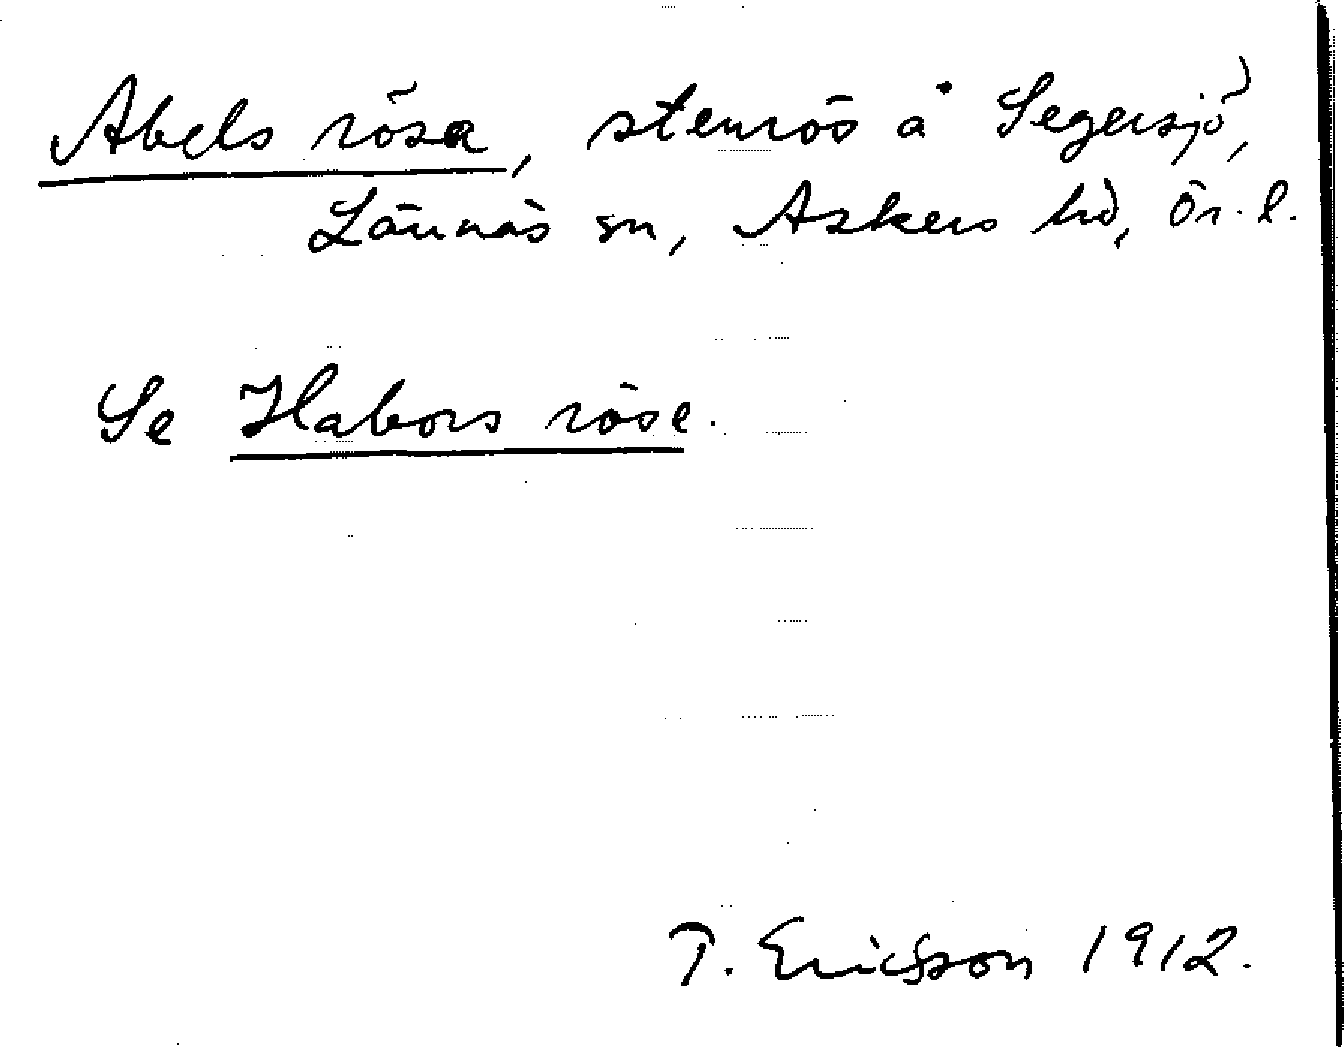 Abels rösa, stenrös å Segersjö,
Lännäs sn, Askers hd, Ör. l.
Se Habors röse.
T. Ericsson 1912.